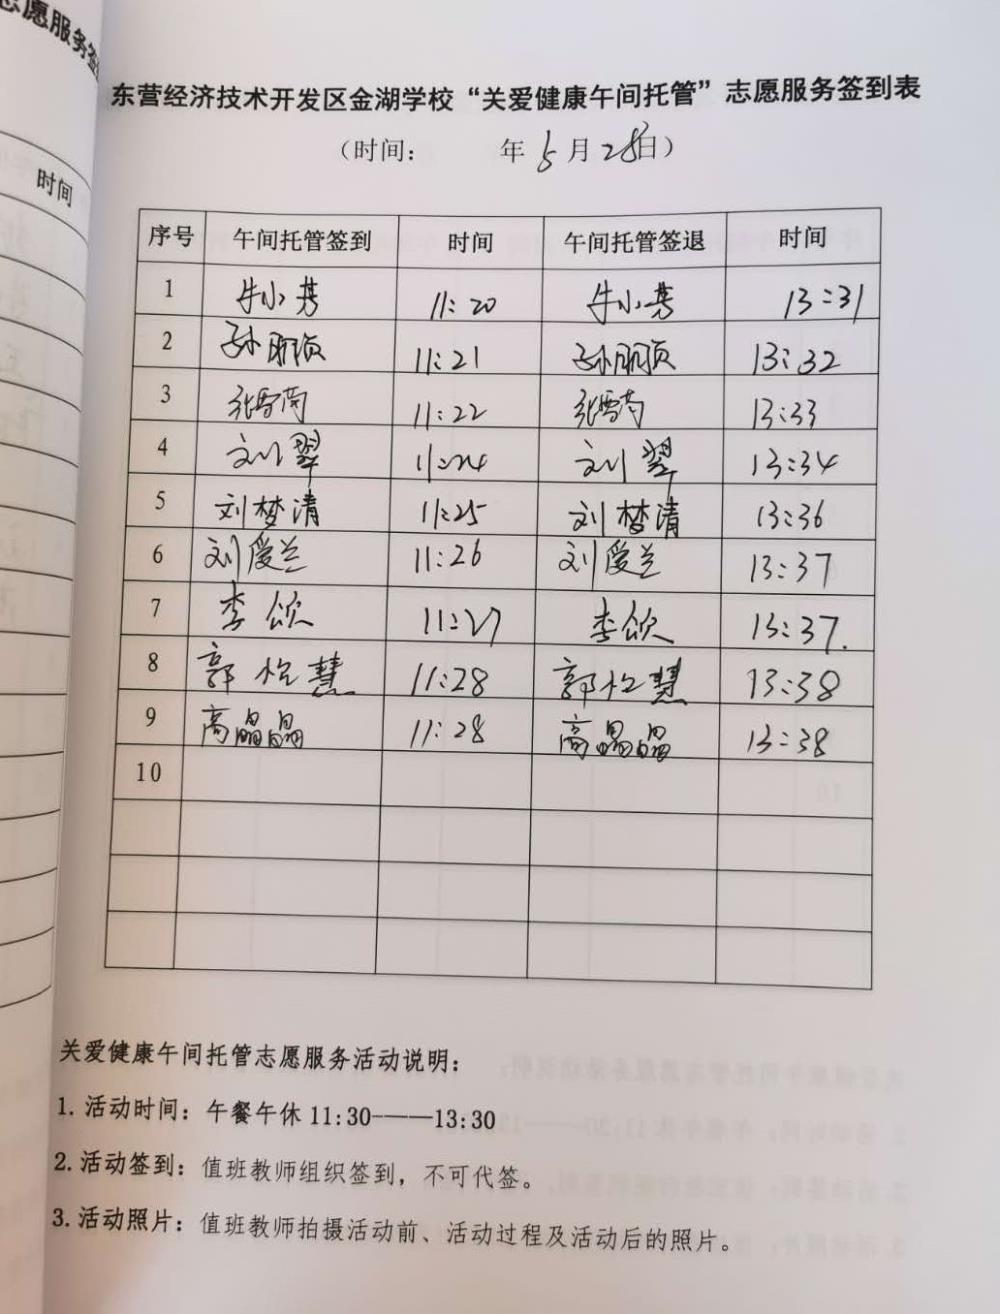 志愿服务签
时间
东营经济技术开发区金湖学校“关爱健康午间托管”志愿服务签到表
（时间： 年 5 月 28 日）
序号 午间托管签到 时间 午间托管签退 时间
1 牛小芳 11:20 牛小芳 13:31
2 孙丽颀 11:21 孙丽颀 13:32
3 张雪菊 11:22 张雪菊 13:33
4 刘翠 11:24 刘翠 13:34
5 刘梦清 11:25 刘梦清 13:36
6 刘爱兰 11:26 刘爱兰 13:37
7 李欣 11:27 李欣 13:37.
8 郭怡慧 11:28 郭怡慧 13:38
9 高晶晶 11:28 高晶晶 13:38
10
关爱健康午间托管志愿服务活动说明：
1. 活动时间：午餐午休 11:30———13:30
2. 活动签到：值班教师组织签到，不可代签。
3. 活动照片：值班教师拍摄活动前、活动过程及活动后的照片。